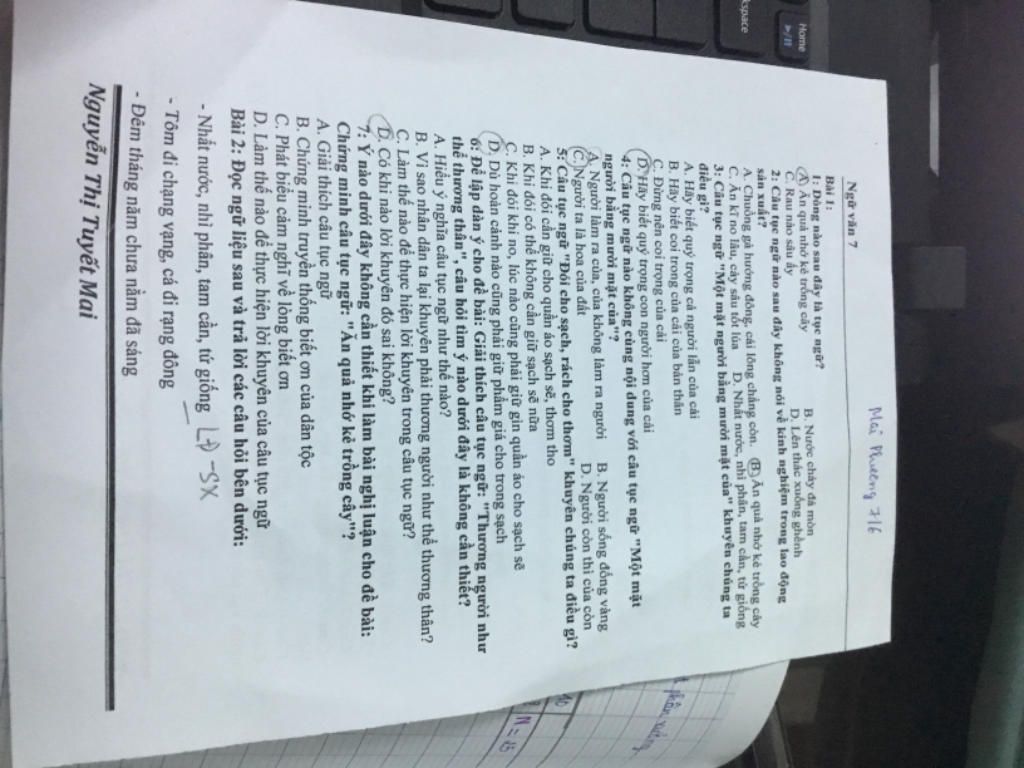 Mai Phương 7/6
Ngữ văn 7
Bài 1:
1: Dòng nào sau đây là tục ngữ?
A. Ăn quả nhớ kẻ trồng cây B. Nước chảy đá mòn
C. Rau nào sâu ấy D. Lên thác xuống ghềnh
2: Câu tục ngữ nào sau đây không nói về kinh nghiệm trong lao động
sản xuất?
A. Chuồng gà hướng đông, cái lông chẳng còn. B. Ăn quả nhớ kẻ trồng cây
C. Ăn kĩ no lâu, cày sâu tốt lúa D. Nhất nước, nhì phân, tam cần, tứ giống
3: Câu tục ngữ "Một mặt người bằng mười mặt của" khuyên chúng ta
điều gì?
A. Hãy biết quý trọng cả người lẫn của cải
B. Hãy biết coi trọng của cải của bản thân
C. Đừng nên coi trọng của cải
D. Hãy biết quý trọng con người hơn của cải
4: Câu tục ngữ nào không cùng nội dung với câu tục ngữ "Một mặt
người bằng mười mặt của"?
A. Người làm ra của, của không làm ra người B. Người sống đống vàng
C. Người ta là hoa của đất D. Người còn thì của còn
5: Câu tục ngữ "Đói cho sạch, rách cho thơm" khuyên chúng ta điều gì?
A. Khi đói cần giữ cho quần áo sạch sẽ, thơm tho
B. Khi đói có thể không cần giữ sạch sẽ nữa
C. Khi đói khi no, lúc nào cũng phải giữ gìn quần áo cho sạch sẽ
D. Dù hoàn cảnh nào cũng phải giữ phẩm giá cho trong sạch
6: Để lập dàn ý cho đề bài: Giải thích câu tục ngữ: "Thương người như
thể thương thân", câu hỏi tìm ý nào dưới đây là không cần thiết?
A. Hiểu ý nghĩa câu tục ngữ như thế nào?
B. Vì sao nhân dân ta lại khuyên phải thương người như thể thương thân?
C. Làm thế nào để thực hiện lời khuyên trong câu tục ngữ?
D. Có khi nào lời khuyên đó sai không?
7: Ý nào dưới đây không cần thiết khi làm bài nghị luận cho đề bài:
Chứng minh câu tục ngữ: "Ăn quả nhớ kẻ trồng cây"?
A. Giải thích câu tục ngữ
B. Chứng minh truyền thống biết ơn của dân tộc
C. Phát biểu cảm nghĩ về lòng biết ơn
D. Làm thế nào để thực hiện lời khuyên của câu tục ngữ
Bài 2: Đọc ngữ liệu sau và trả lời các câu hỏi bên dưới:
- Nhất nước, nhì phân, tam cần, tứ giống LĐ-SX
- Tôm đi chạng vạng, cá đi rạng đông
- Đêm tháng năm chưa nằm đã sáng
Nguyễn Thị Tuyết Mai
Home
N = 15